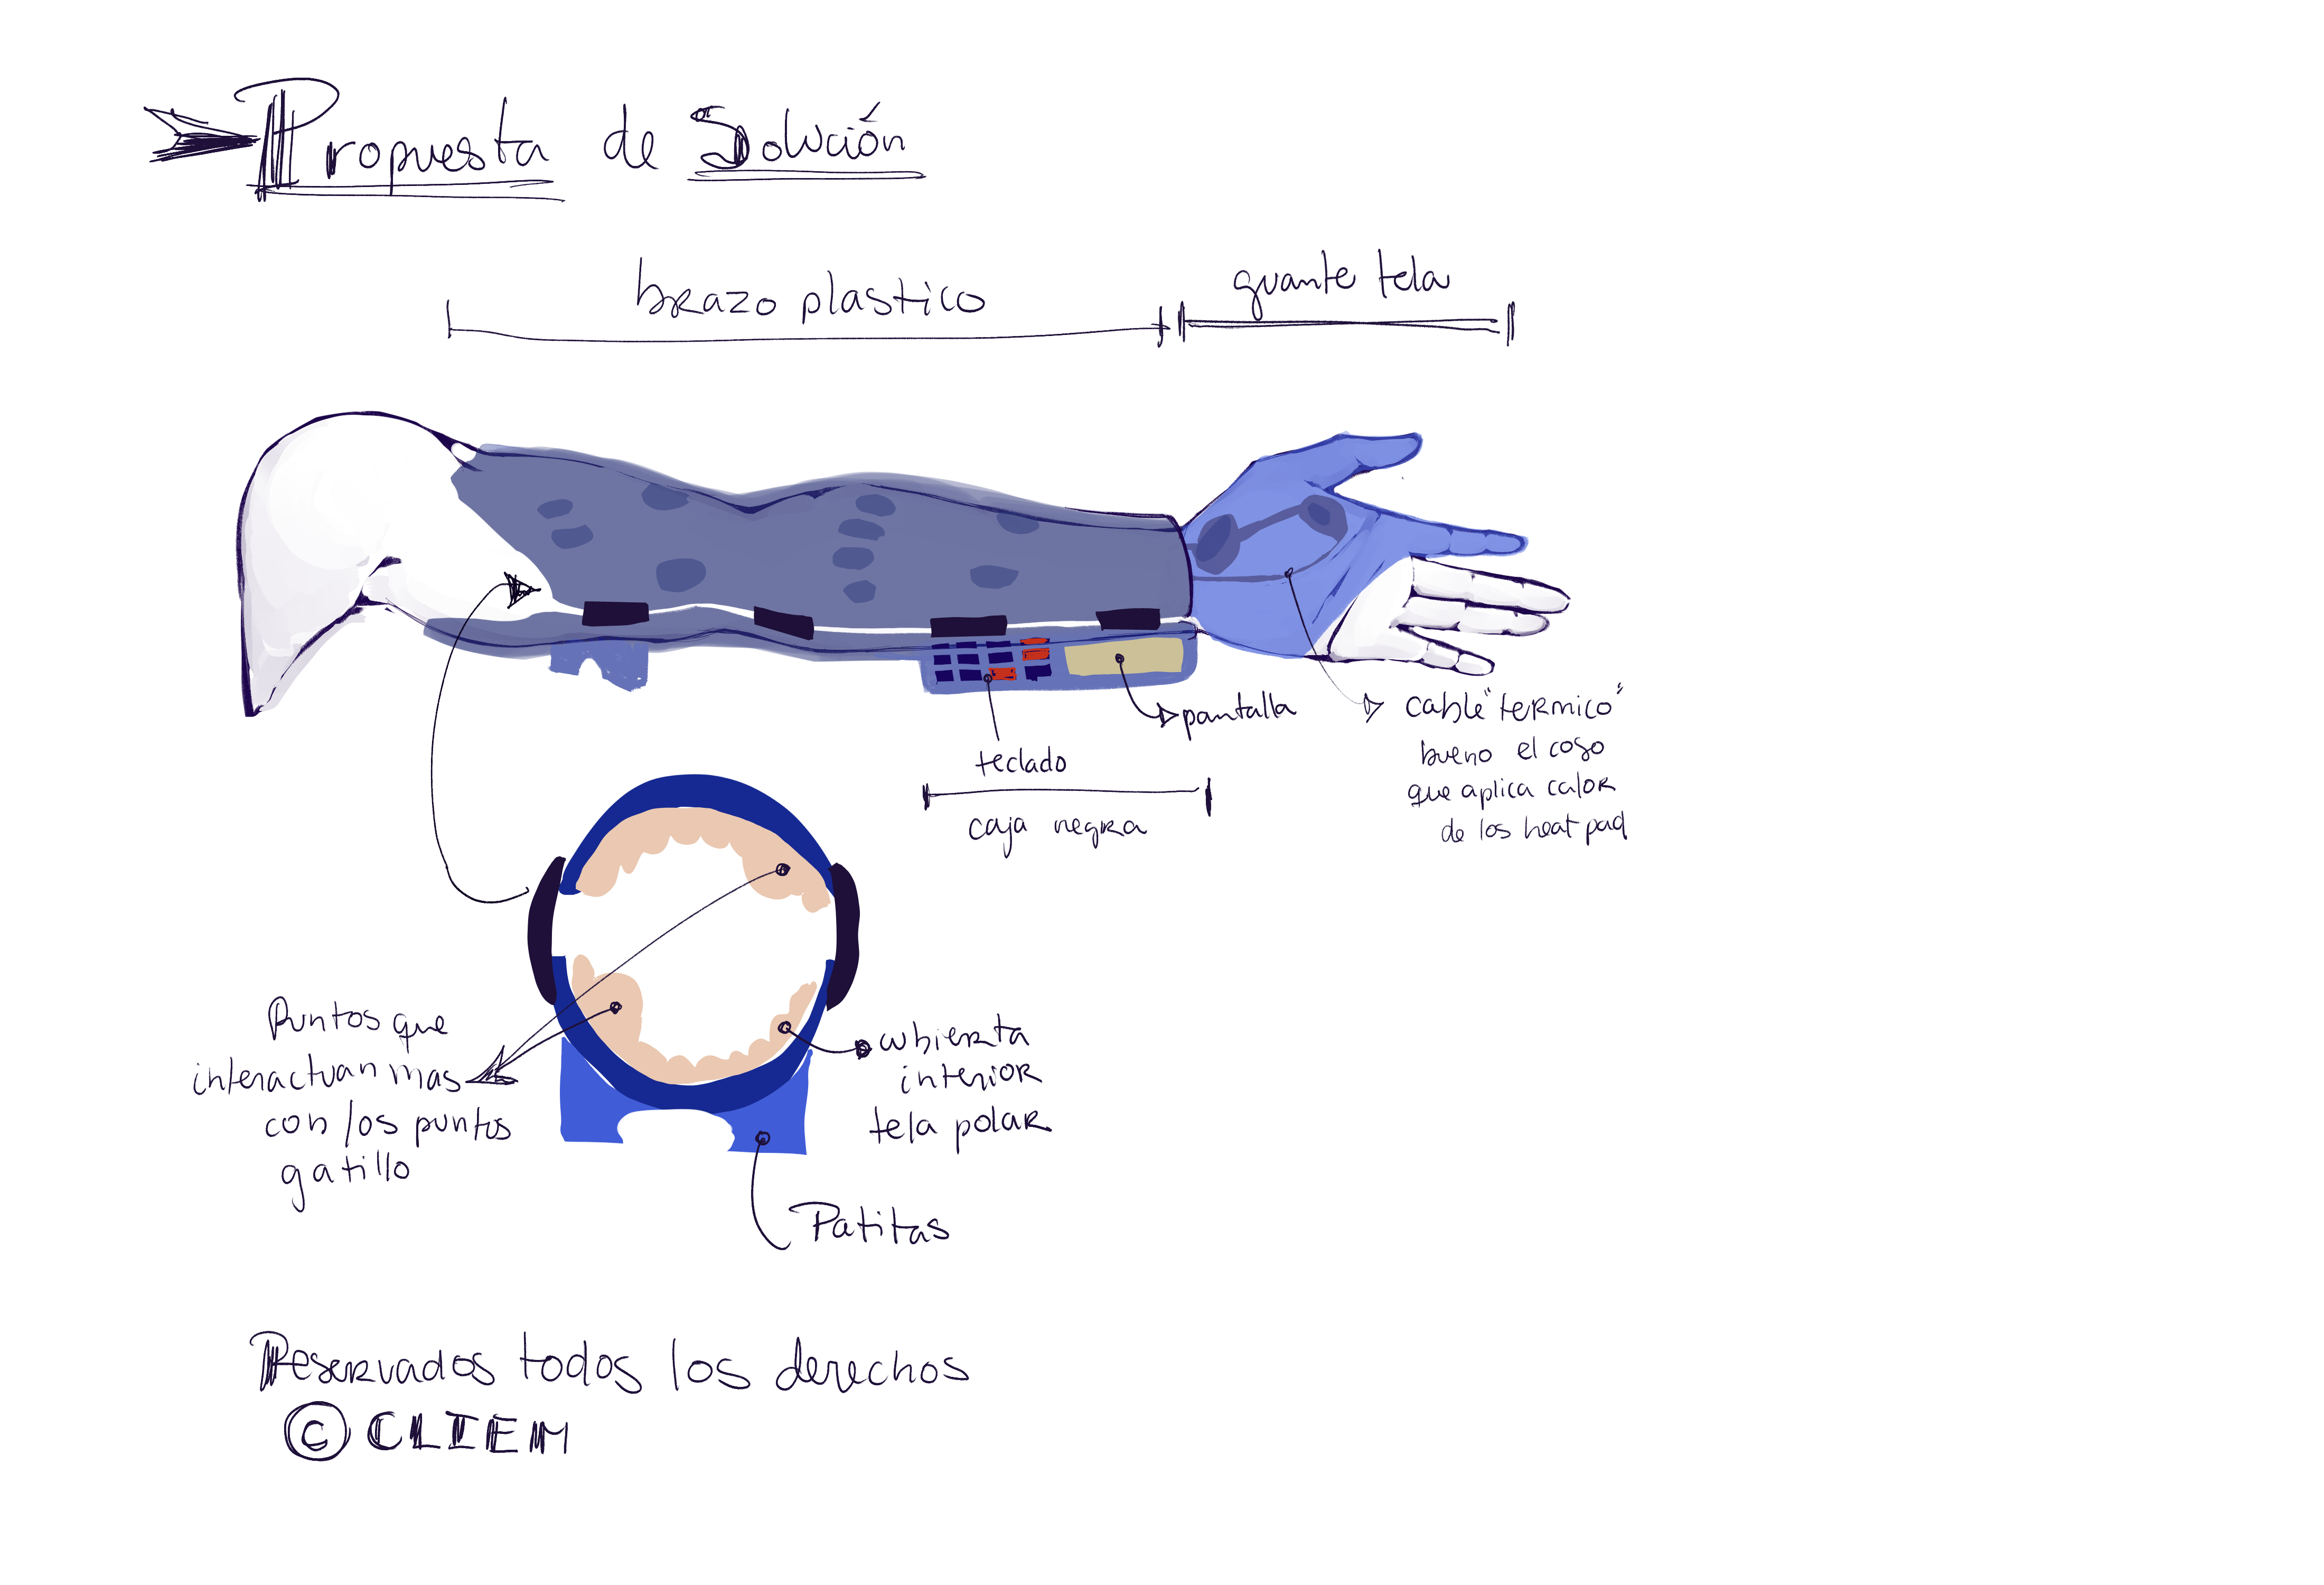 Propuesta de Solución
brazo plastico
guante tela
pantalla
teclado
caja negra
cable "termico"
bueno el coso
que aplica calor
de los heat pad
Puntos que
interactuan mas
con los puntos
gatillo
cubierta
interior
tela polar
Patitas
Reservados todos los derechos
© CLIEM